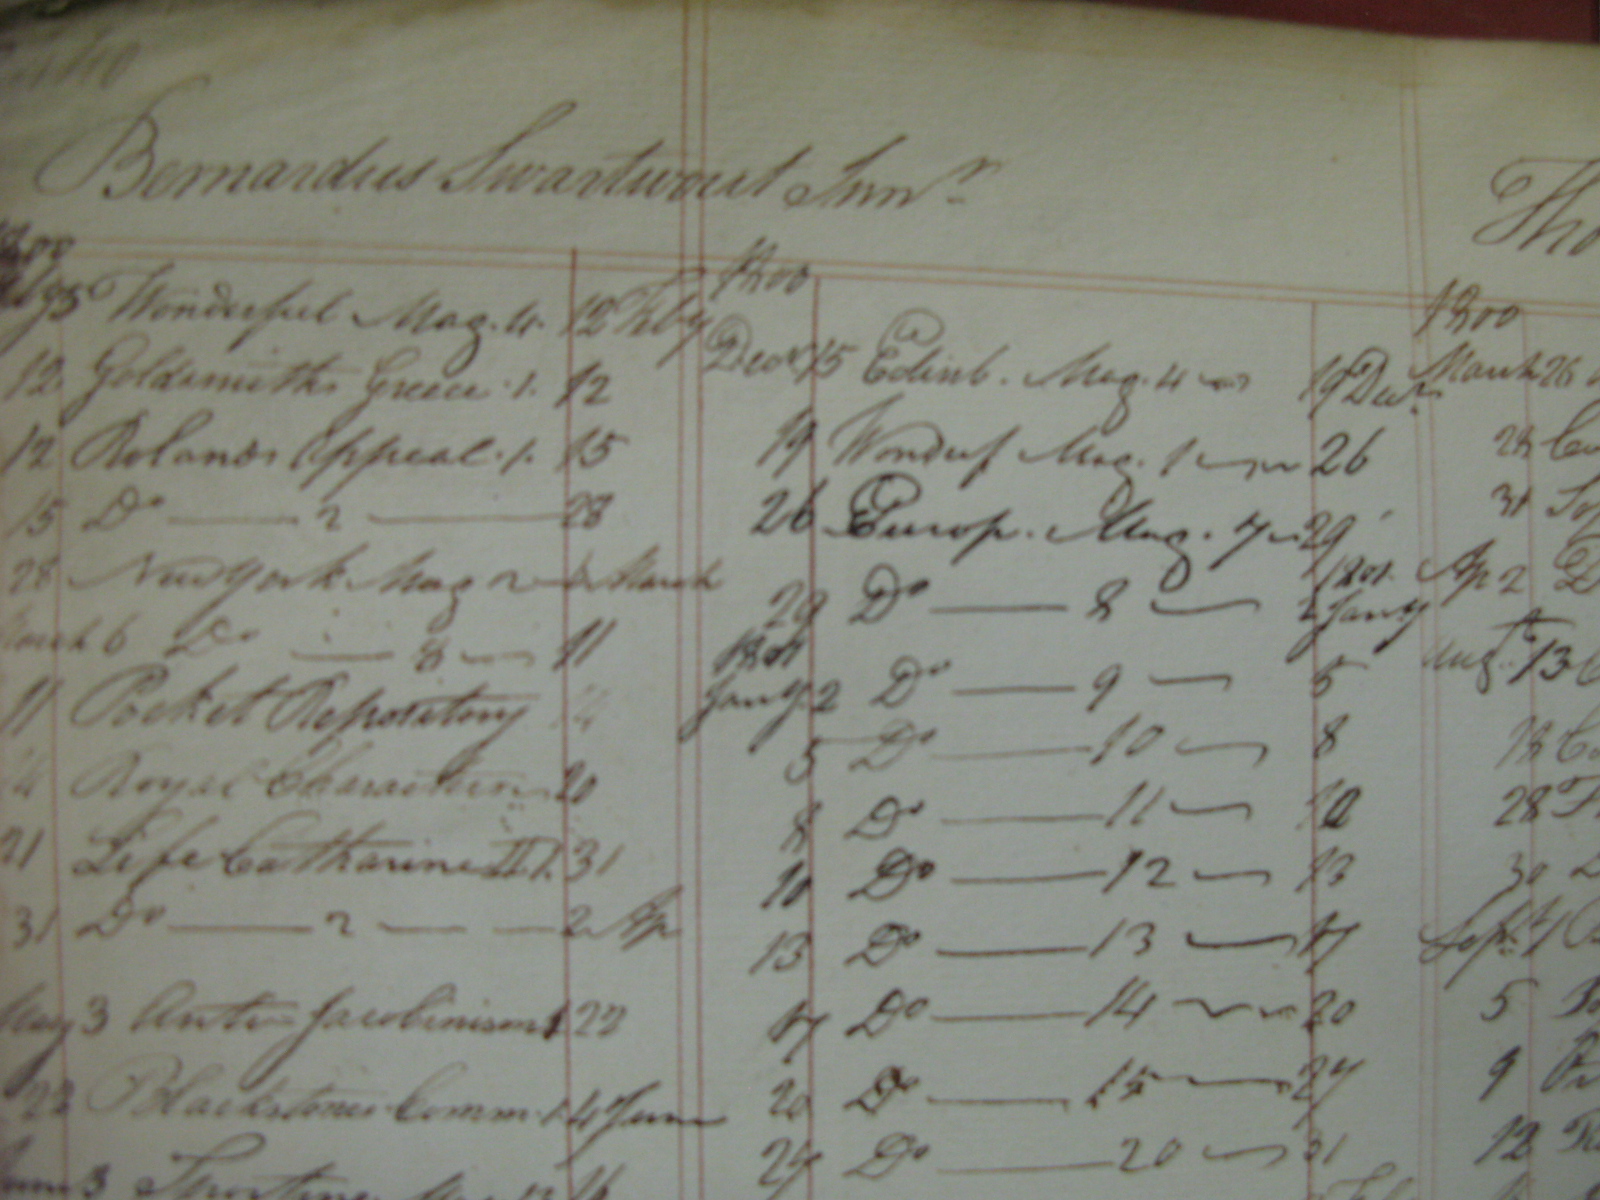 Bernardus Swartwout Junr.
1800
5 Wonderful Mag. 4. 12 Feby
12 Goldsmiths Greece. 1. 12
12 Rolands Appeal. 1. 15
15 Do 2 28
28 New York Mag March
March 6 Do 8 11
11 Pocket Repository
14 Royal Characters 20
21 Life Catharine II 1. 31
31 Do 2 2 Ap
May 3 Anti-Jacobinism 1 22
22 Blackstones Comm. 1. 4 June
June 3 Sporting 16
1800
Decr. 15 Edinb. Mag. 4 19 Decr.
19 Wonderf Mag. 1 26
26 Europ. Mag. 7 29
29 Do 8 2 Jany
1801
1801
Jany. 2 Do 9 5
5 Do 10 8
8 Do 11 10
10 Do 12 13
13 Do 13 17
17 Do 14 20
20 Do 15 27
27 Do 20 31
Tho
1800
March 26
28
31
Ap 2 D
Augt. 13
18
28
30
Sept. 1
5
9
12